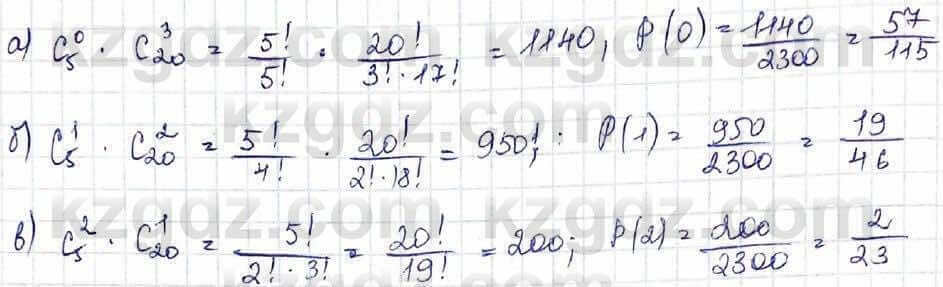 а) C₅⁰ · C₂₀³ = 5!/5! · 20!/(3!·17!) = 1140, P(0) = 1140/2300 = 57/115
б) C₅¹ · C₂₀² = 5!/4! · 20!/(2!·18!) = 950; P(1) = 950/2300 = 19/46
в) C₅² · C₂₀¹ = 5!/(2!·3!) = 20!/19! = 200; P(2) = 200/2300 = 2/23
kzgdz.com
kzgdz.com
kzgdz.com